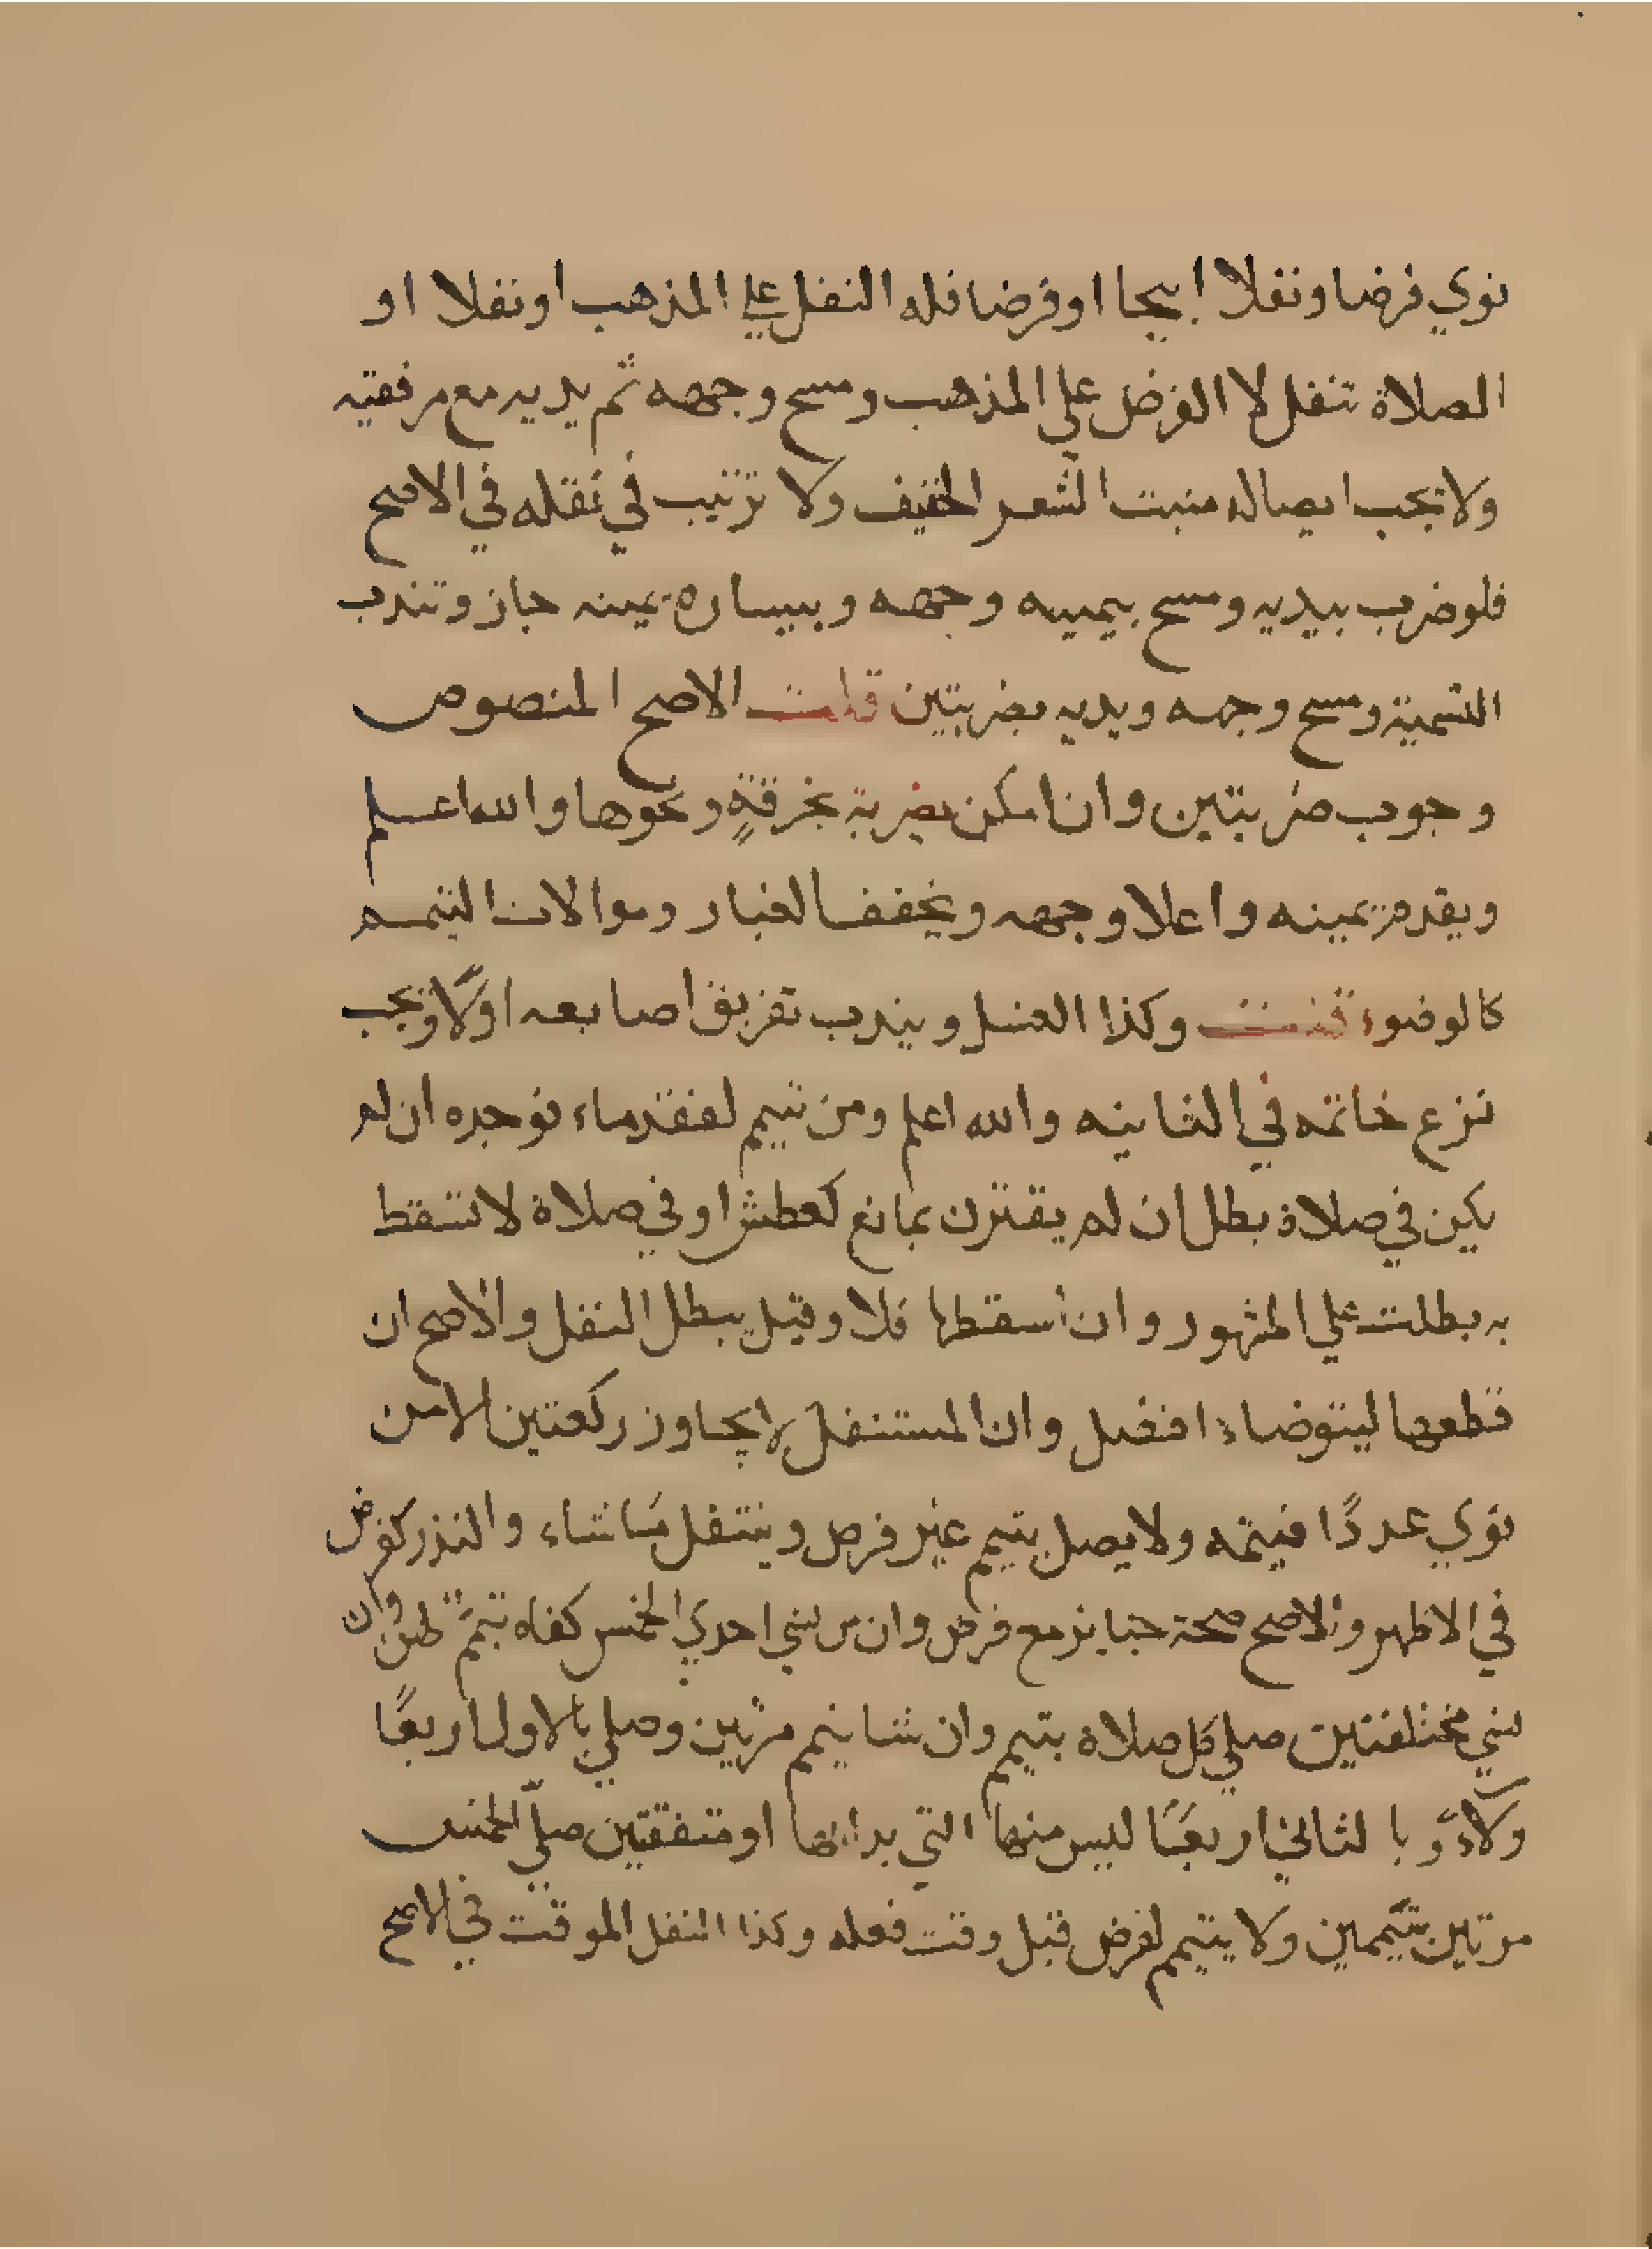 نوي فرضا ونفلا ابيحا او فرضا فله النفل علي المذهب او نفلا او
الصلاة تنفل لا الفرض علي المذهب ومسح وجهه ثم يديه مع مرفقيه
ولا يجب ايصاله منبت الشعر الخفيف ولا ترتيب في نقله في الاصح
فلو ضرب بيديه ومسح بيمينه وجهه وبيساره يمينه جاز وتندب
التسمية ومسح وجهه ويديه بضربتين قلت الاصح المنصوص
وجوب ضربتين وان امكن بضربة بخرقةٍ ونحوها والله اعلم
ويقدم يمينه واعلا وجهه ويخفف الغبار وموالات التيمم
كالوضوء قلت وكذا الغسل ويندب تفريق اصابعه اوّلا ويجب
نزع خاتمه في الثانيه والله اعلم ومن تيمم لفقد ماء فوجده ان لم
يكن في صلاة بطل ان لم يقترن بمانع كعطش او في صلاة لا تسقط
به بطلت علي المشهور وان اسقطها فلا وقيل يبطل النفل والاصح ان
قطعها ليتوضاء افضل وان المتنفل لا يجاوز ركعتين الا من
نوي عددًا فيتمه ولا يصل بتيمم غير فرض وينتفل ما شاء والنذر كفرض
في الاظهر والاصح صحة جنايز مع فرض وان من نسي احدي الخمس كفاه تيمّم لهن وان
نسي مختلفتين صلي كل صلاة بتيمم وان شا تيمم مرتين وصلي بالاول اربعًا
ولاءً وبالثاني اربعًا ليس منها التي بدا بها او متفقتين صلّي الخمس
مرتين بتيممين ولا يتيمم لفرض قبل وقت فعله وكذا النفل الموقت في الاصح